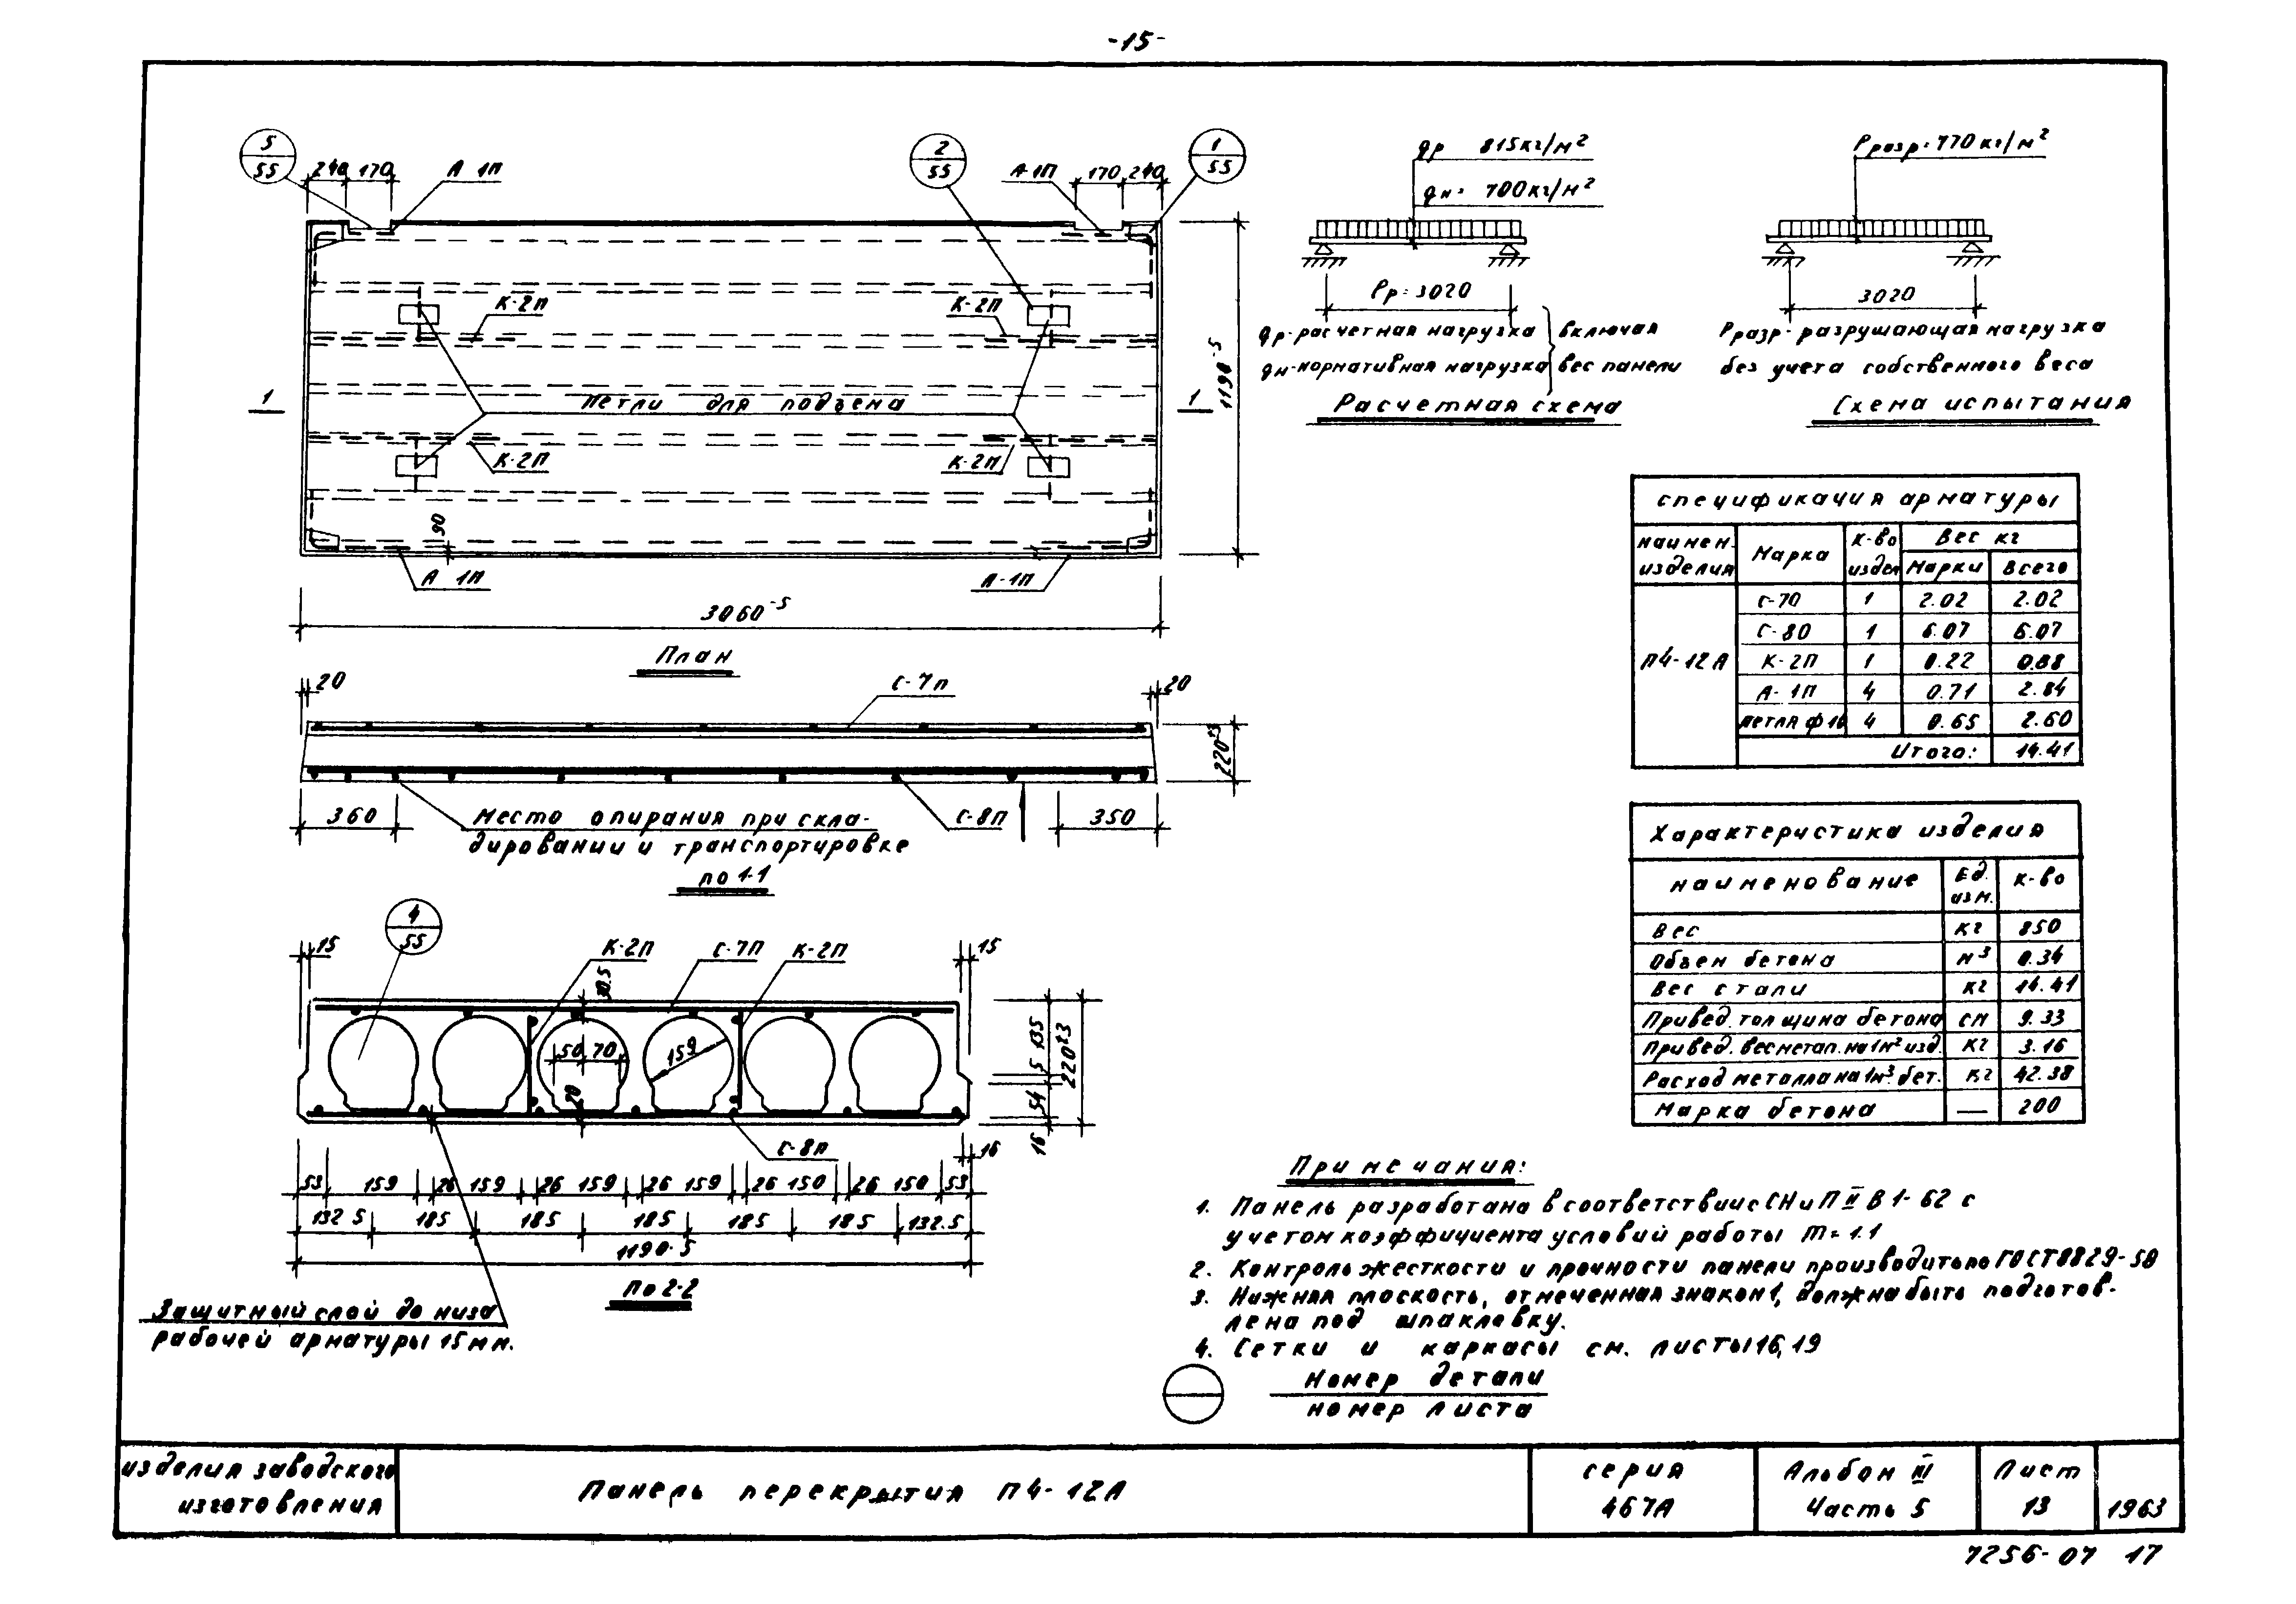 -15-
5
55
240 170
А 1П
2
55
А-1П
170 240
1
55
К-2П
К-2П
1
Петли для подъема
1
1190-5
К-2П
К-2П
90
А 1П
А-1П
3060-5
План
20
С-7п
20
220±3
360
Место опирания при скла-
дировании и транспортировке
С-8П
350
по 1-1
4
55
15
К-2П
С-7П
К-2П
15
30.5
50 70
159
20
135
5
54
16
220±3
С-8п
16
53 159 26 159 26 159 26 159 26 150 26 150 53
132 5 185 185 185 185 185 132.5
1190-5
По 2-2
Защитный слой до низа
рабочей арматуры 15мм.
qр 815кг/м²
qн= 700кг/м²
ℓр=3020
qр-расчетная нагрузка
qн-нормативная нагрузка
включая
вес панели
Расчетная схема
Рразр=770кг/м²
3020
Рразр-разрушающая нагрузка
без учета собственного веса
Схема испытания
спецификация арматуры
наимен. изделия Марка К-во издел Вес кг
Марки Всего
П4-12А
С-70 1 2.02 2.02
С-80 1 6.07 6.07
К-2П 1 0.22 0.88
А-1П 4 0.71 2.84
петля ф10 4 0.65 2.60
Итого: 14.41
Характеристика изделия
наименование Ед. изм. К-во
Вес кг 850
Объем бетона м³ 0.34
Вес стали кг 14.41
Привед. толщина бетона см 9.33
Привед. вес метал. на 1м² изд. кг 3.16
Расход металла на 1м³ бет. кг 42.38
Марка бетона — 200
Примечания:
1. Панель разработана в соответствии с СНиП II В 1-62 с
учетом коэффициента условий работы m=1.1
2. Контроль жесткости и прочности панели производить по ГОСТ 8829-58
3. Нижняя плоскость, отмеченная знаком 1, должна быть подготов-
лена под шпаклевку.
4. Сетки и каркасы см. листы 16,19
Номер детали
номер листа
изделия заводского
изготовления
Панель перекрытия П4-12А
серия
467А
Альбом III
Часть 5
Лист
13
1963
7256-07 17